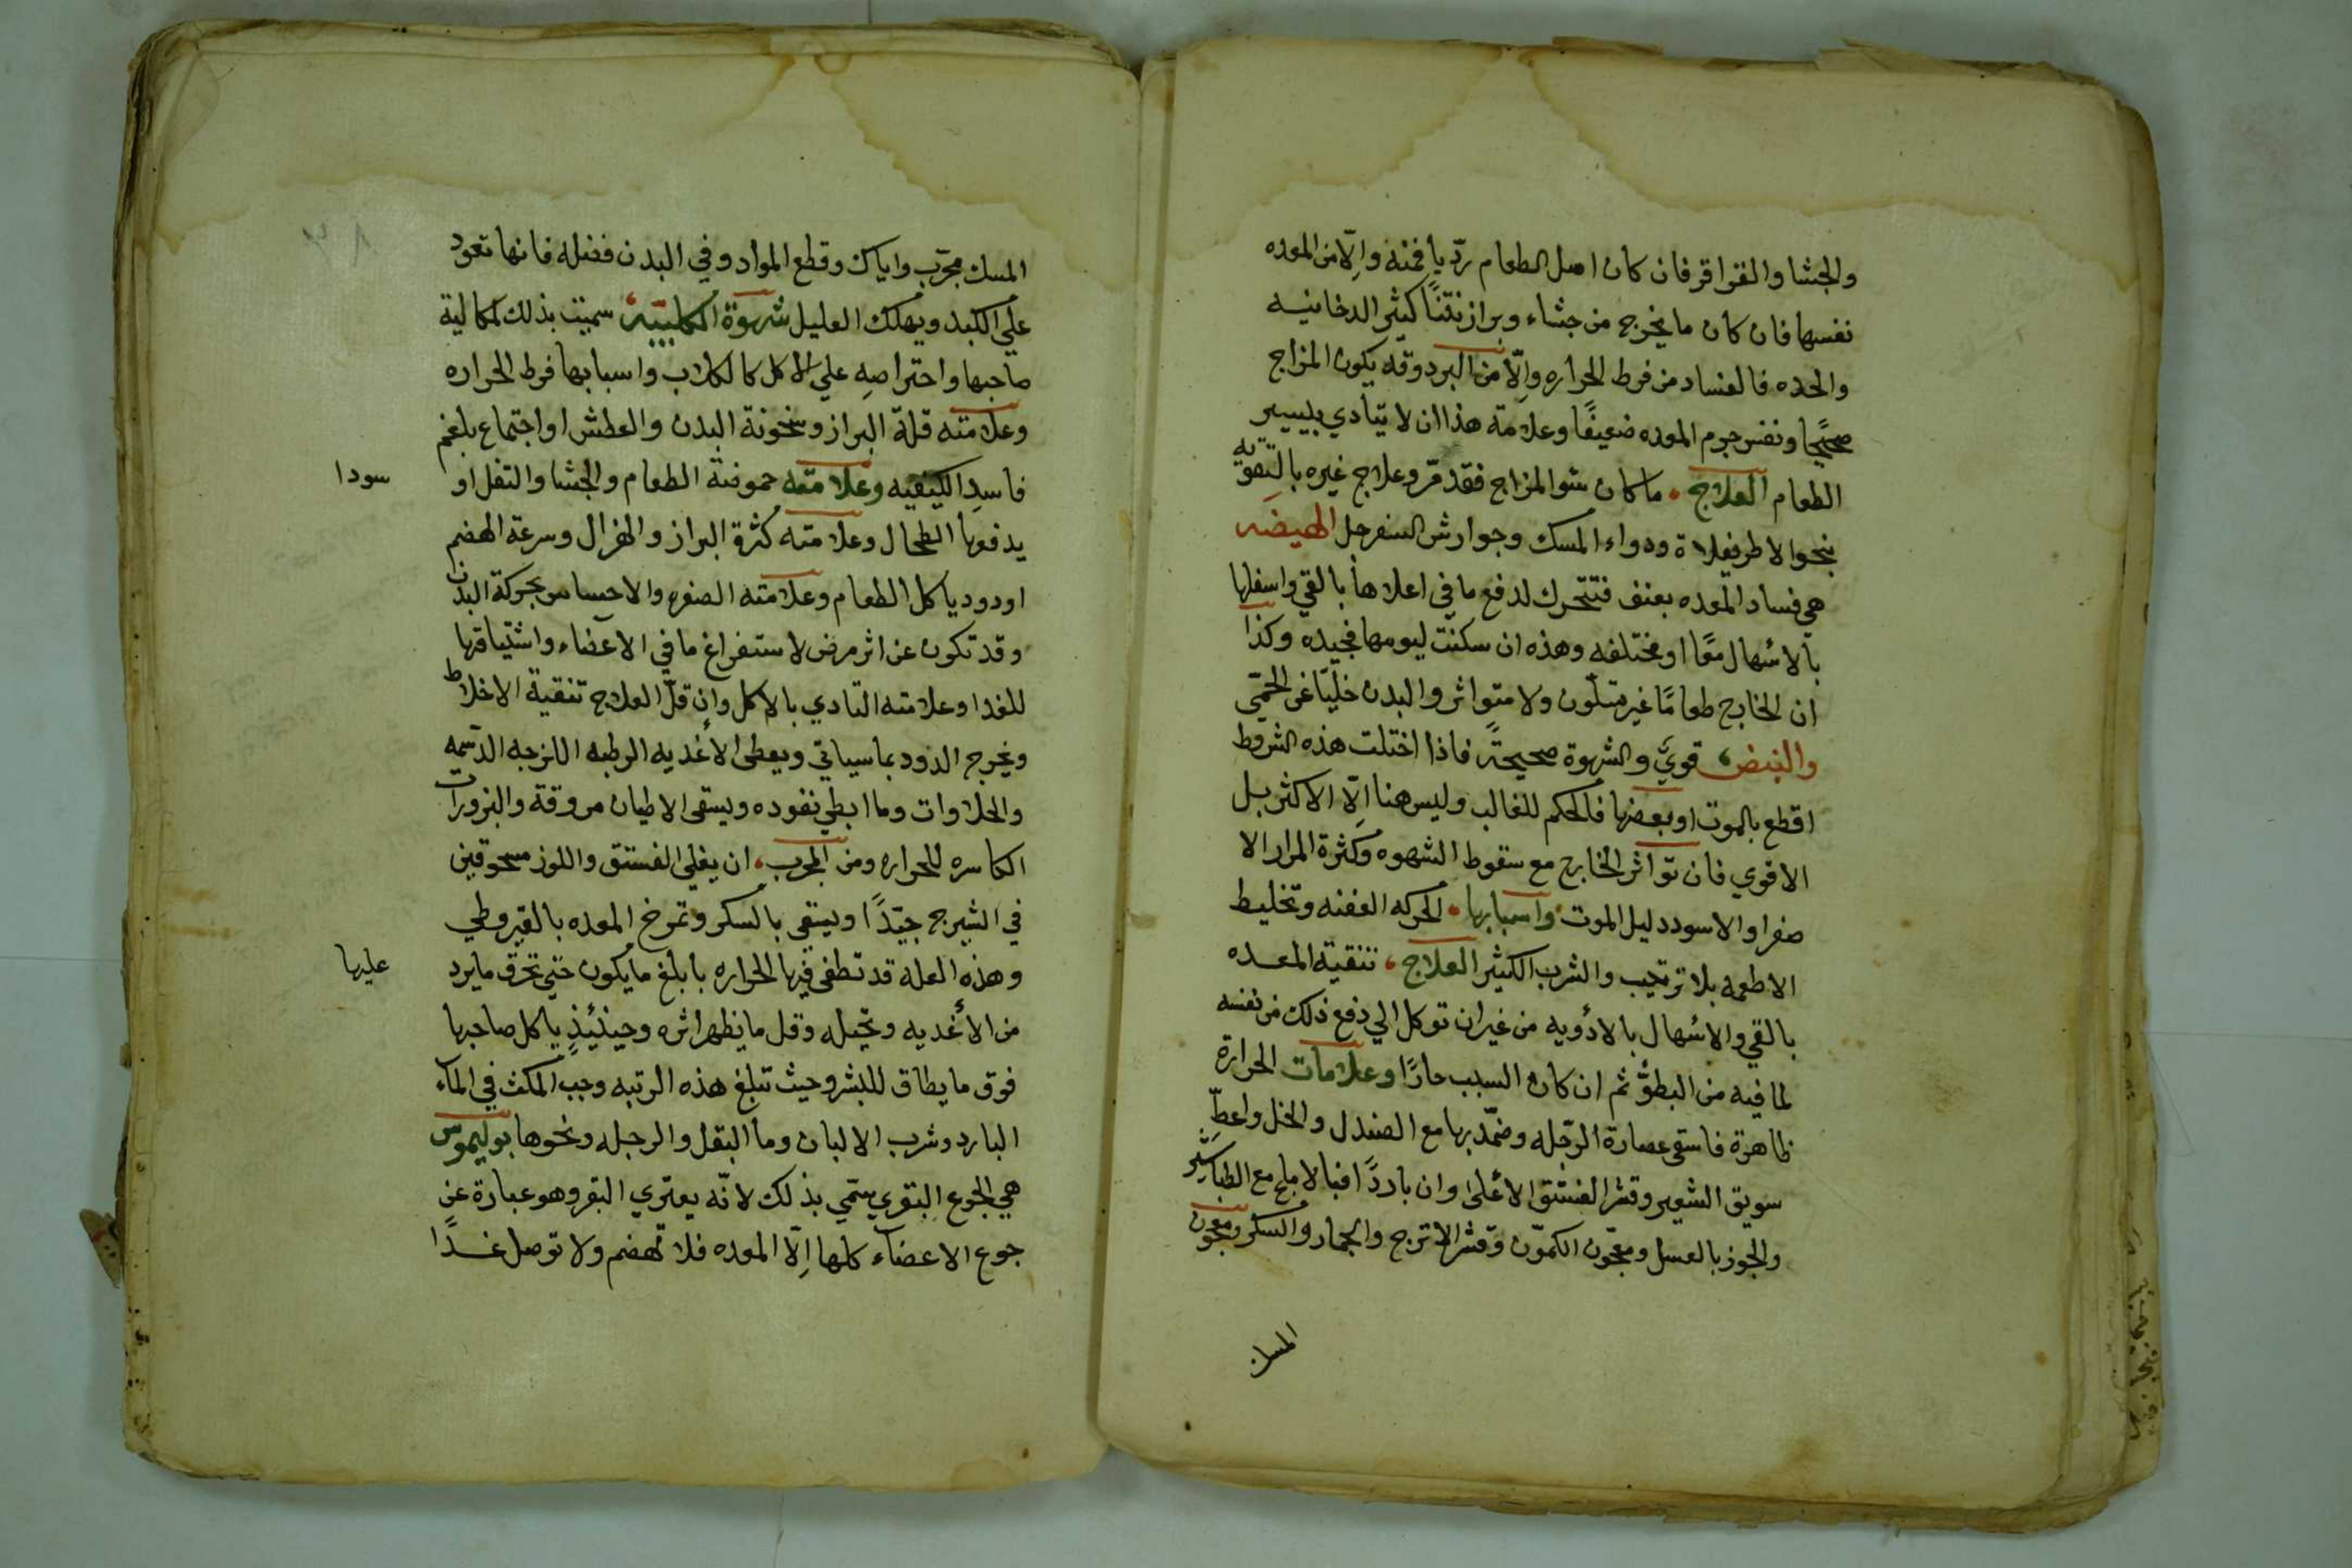 والجشا والقراقر فان كان اصل الطعام رديا فمنه والّا من المعده
نفسها فان كان ما يخرج من جشاء وبراز نتنًا كثير الدخانيه
والحده فالفساد من فرط الحراره والّا من البرد وقد يكون المزاج
صحيحًا ونفس جرم المعده ضعيفًا وعلامة هذا ان لا يتادي بيسير
الطعام العلاج ما كان سُو المزاج فقد مرّ وعلاج غيره بالتقويه
بنحو الاطريفلاة ودواء المسك وجوارش السفرجل الهيضه
هي فساد المعده بعنف فتتحرك لدفع ما في اعلاها بالقي واسفلها
بالاسهال معًا او مختلفه وهذه ان سكنت ليومها فجيده وكذا
ان الخارج طعامًا غير متلّون ولا متواتر والبدن خليّا عن الحمّي
والنبض قويّ والشهوة صحيحةً فاذا اختلت هذه الشروط
اقطع بالموت او بعضها فالحكم للغالب وليس هنا الّا الاكثر بل
الاقوي فان تواتر الخارج مع سقوط الشهوه وكثرة المرار الا
صفر او الاسود دليل الموت واسبابها الحركه العفنه وتخليط
الاطعمه بلا ترتيب والشرب الكثير العلاج تنقية المعده
بالقي والاسهال بالادويه من غير ان توكل الي دفع ذلك من نفسه
لما فيه من البطؤ ثم ان كان السبب حارًا وعلامات الحرارة
ظاهرة فاسقى عصارة الرجله وضمّد بها مع الصندل والخل واعطِ
سويق الشعير وقشر الفستق الاعلى وان باردًا فبالاملج مع الطباشير
والجوز بالعسل ومعجون الكمّون وقشر الاترج والجمار والسكر ومعجون
المسك
المسك مجرّب واياك وقطع المواد وفي البدن فضله فانها تعود
علي الكبد ويهلك العليل شهوة الكلبيه سميت بذلك لمكالبة
صاحبها واحتراصهِ علي الاكل كالكلاب واسبابها فرط الحراره
وعلامته قلة البراز وسخونة البدن والعطش او اجتماع بلغم
فاسد الكيفيه وعلامته حموضة الطعام والجشا والتفل او
سودا
يدفعها الطحال وعلامته كثرة البراز والهزال وسرعة الهضم
او دود ياكل الطعام وعلامته الصفره والاحساس بحركة البدن
وقد تكون عن اثر مرض لاستفراغ ما في الاعضاء واشتياقها
للغدا وعلامته التادي بالاكل وان قلّ العلاج تنقية الاخلاط
ويخرج الدود بما سياتي ويعطى الاغديه الرطبه اللزجه الدسمه
والحلاوات وما ابطي نفوده ويسقى الاطيان مروقة والبزورات
الكاسره للحراره ومن المجرب ان يغلي الفستق واللوز مسحوقين
في الشيرج جيّدًا ويسقى بالسكر وتمرخ المعده بالقيروطي
وهذه العله قد تطفى فيها الحراره بابلغ ما يكون حتي تحرق ما يرد
عليها
من الاغديه وتحيله وقل ما يظهر اثره وحينئيذٍ ياكل صاحبها
فوق ما يطاق للبشر وحيث تبلغ هذه الرتبه وجب المكث في الماء
البارد وشرب الالبان وما البقل والرجله ونحوها بوليموس
هي الجوع البقري سمّي بذلك لانّه يعتري البقر وهو عبارة عن
جوع الاعضاء كلها الّا المعده فلا تهضم ولا توصل غدًا